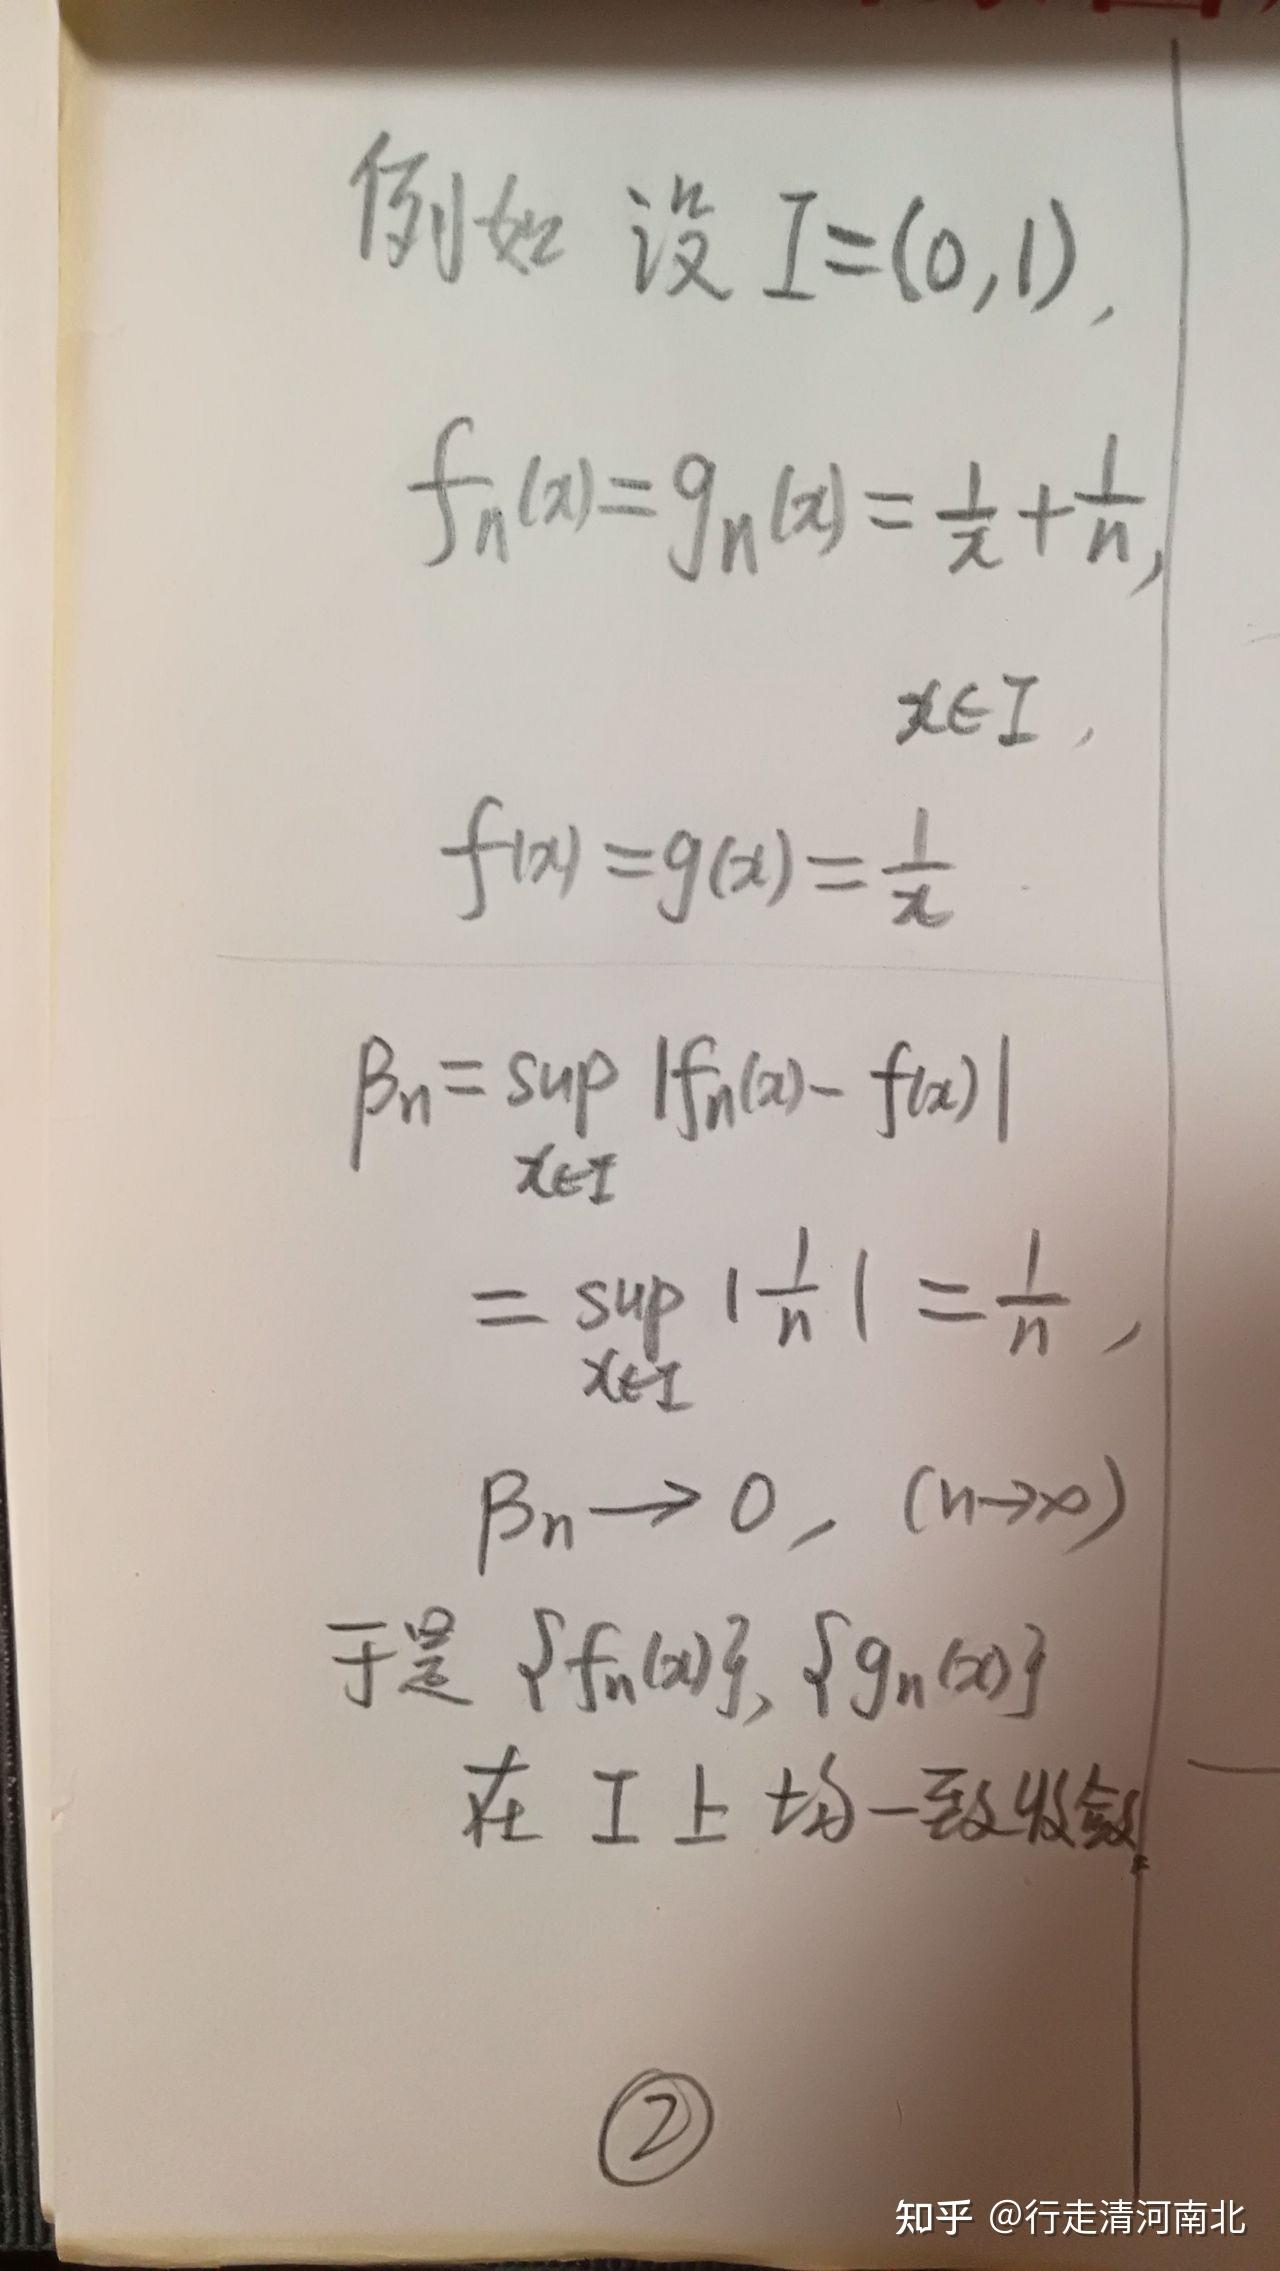 例如 设 I=(0,1),
fn(x)=gn(x)=1/x+1/n,
x∈I,
f(x)=g(x)=1/x
βn=sup |fn(x)-f(x)|
x∈I
=sup |1/n| =1/n,
x∈I
βn→0, (n→∞)
于是 {fn(x)}、{gn(x)}
在 I 上均一致收敛.
②
知乎 @行走清河南北